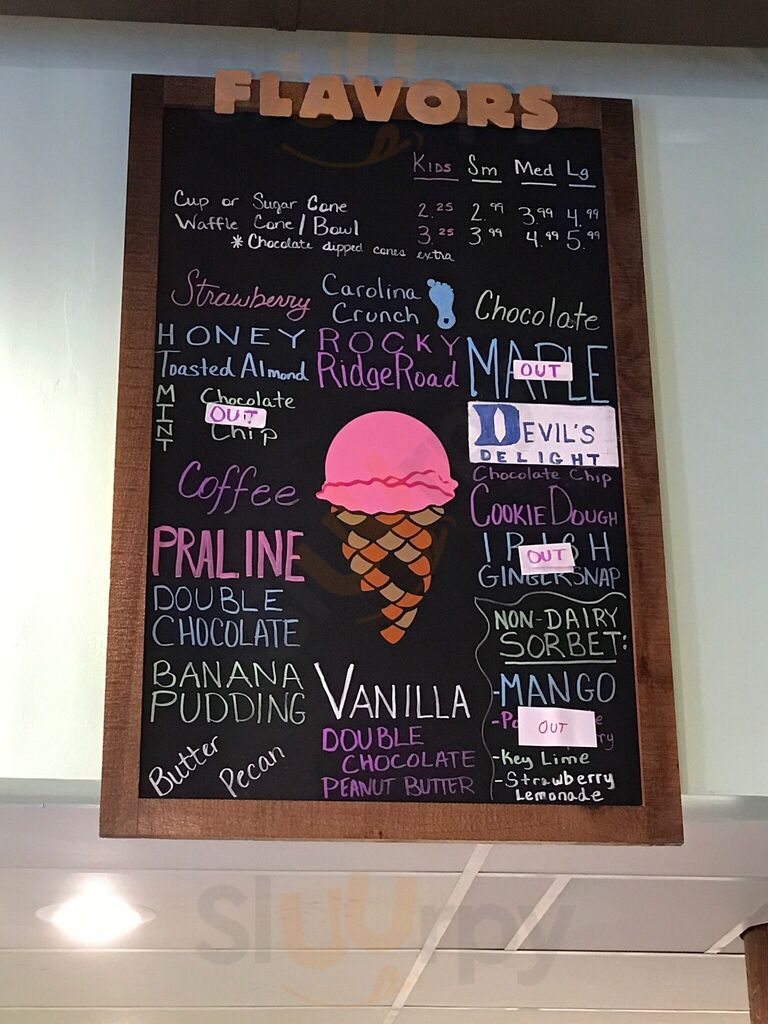 FLAVORS
Kids Sm Med Lg
Cup or Sugar Cone 2.25 2.99 3.99 4.99
Waffle Cone/Bowl 3.25 3.99 4.99 5.99
*Chocolate dipped cones extra
Strawberry
Carolina
Crunch
Chocolate
HONEY
Toasted Almond
ROCKY
RidgeRoad
MAPLE
OUT
MINT
Chocolate
OUT
Chip
DEVIL'S
DELIGHT
Coffee
Chocolate Chip
COOKIE DOUGH
PRALINE
IRISH
OUT
GINGERSNAP
DOUBLE
CHOCOLATE
BANANA
PUDDING
Butter
Pecan
VANILLA
DOUBLE
CHOCOLATE
PEANUT BUTTER
NON-DAIRY
SORBET:
-MANGO
OUT
-Key Lime
-Strawberry
Lemonade
Sluurpy